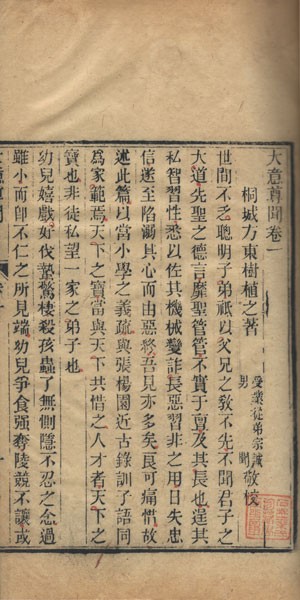 大意尊聞卷一
桐城方東樹植之著
受業從弟宗誠
男聞
敬校
世間不乏聰明子弟祇以父兄之教不先不聞君子之
大道先聖之德言靡聖管管不實于亶及其長也逞其
私智習熟悉以佐其機械變詐長惡習非之用日失忠
信遂至陷溺其心而由惡終吾見亦多矣良可痛惜故
述此篇以當小學之義疏與張楊園近古錄訓子語同
為家範焉天下之寶當與天下共惜之人才者天下之
寶也非徒私望一家之弟子也
幼兒嬉戲如伐蟄驚棲殺孩蟲了無惻隱不忍之念過
雖小而即不仁之所見端幼兒爭食強奪陵競不讓或